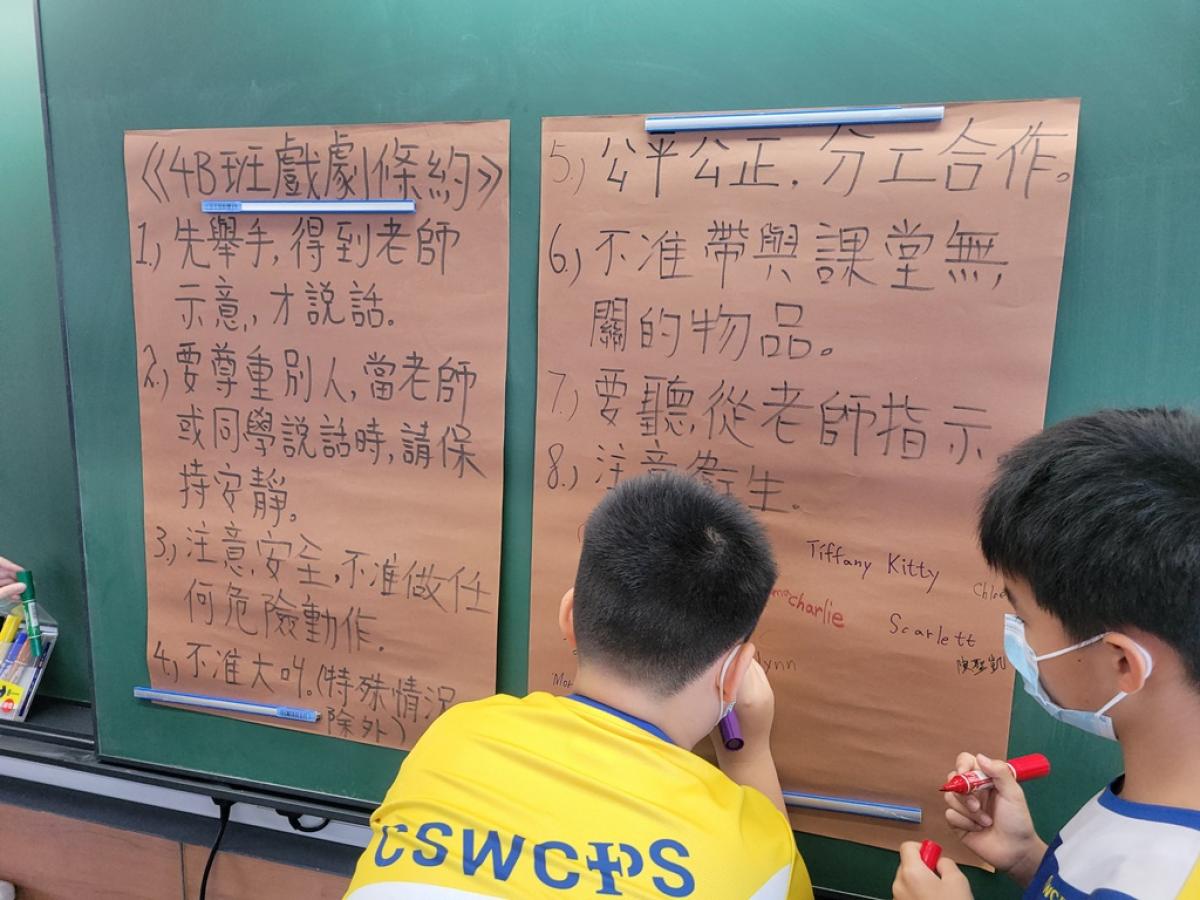 《4B班戲劇條約》
1.) 先舉手,得到老師
示意,才說話。
2.) 要尊重別人,當老師
或同學說話時,請保
持安靜。
3.) 注意安全,不准做任
何危險動作.
4.) 不准大叫。(特殊情況
除外)
5.) 公平公正,分工合作。
6.) 不准帶與課堂無
關的物品。
7.) 要聽從老師指示
8.) 注意衞生.
Tiffany Kitty
charlie
Scarlett
CSWCPS